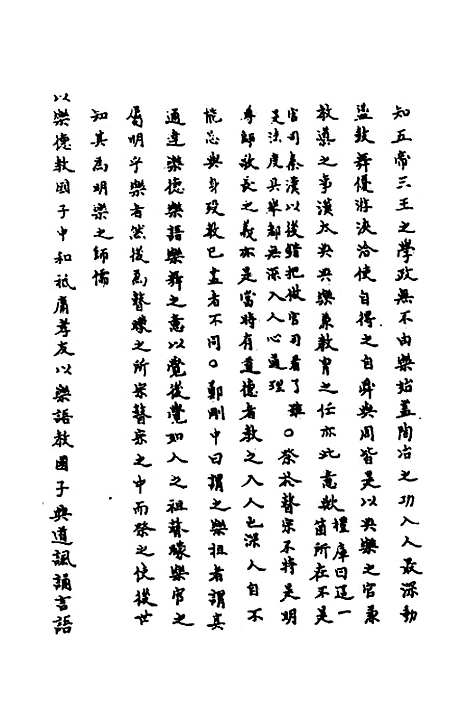 知五帝三王之學政無不由樂始蓋陶冶之功入人最深動
盪鼓舞優游浹洽使自得之自舜與周皆是以典樂之官兼
教導之事漢太典樂兼教胄之任亦此意歟禮庫曰這一箇所在不是
官司秦漢以後錯把做官司看了雖
是法度具舉都無深入人心道理〇祭於瞽宗不特是明
尊師敬長之義亦是當時有道德者教之入人也深入自不
能忘與身歿教已盡者不同〇鄭剛中曰謂之樂祖者謂其
通達樂德樂語樂舞之意以覺後覺如人之祖瞽矇樂官之
屬明乎樂者然後爲瞽矇之所宗瞽宗之中而祭之使後世
知其爲明樂之師儒
以樂德教國子中和祗庸孝友以樂語教國子興道諷誦言語